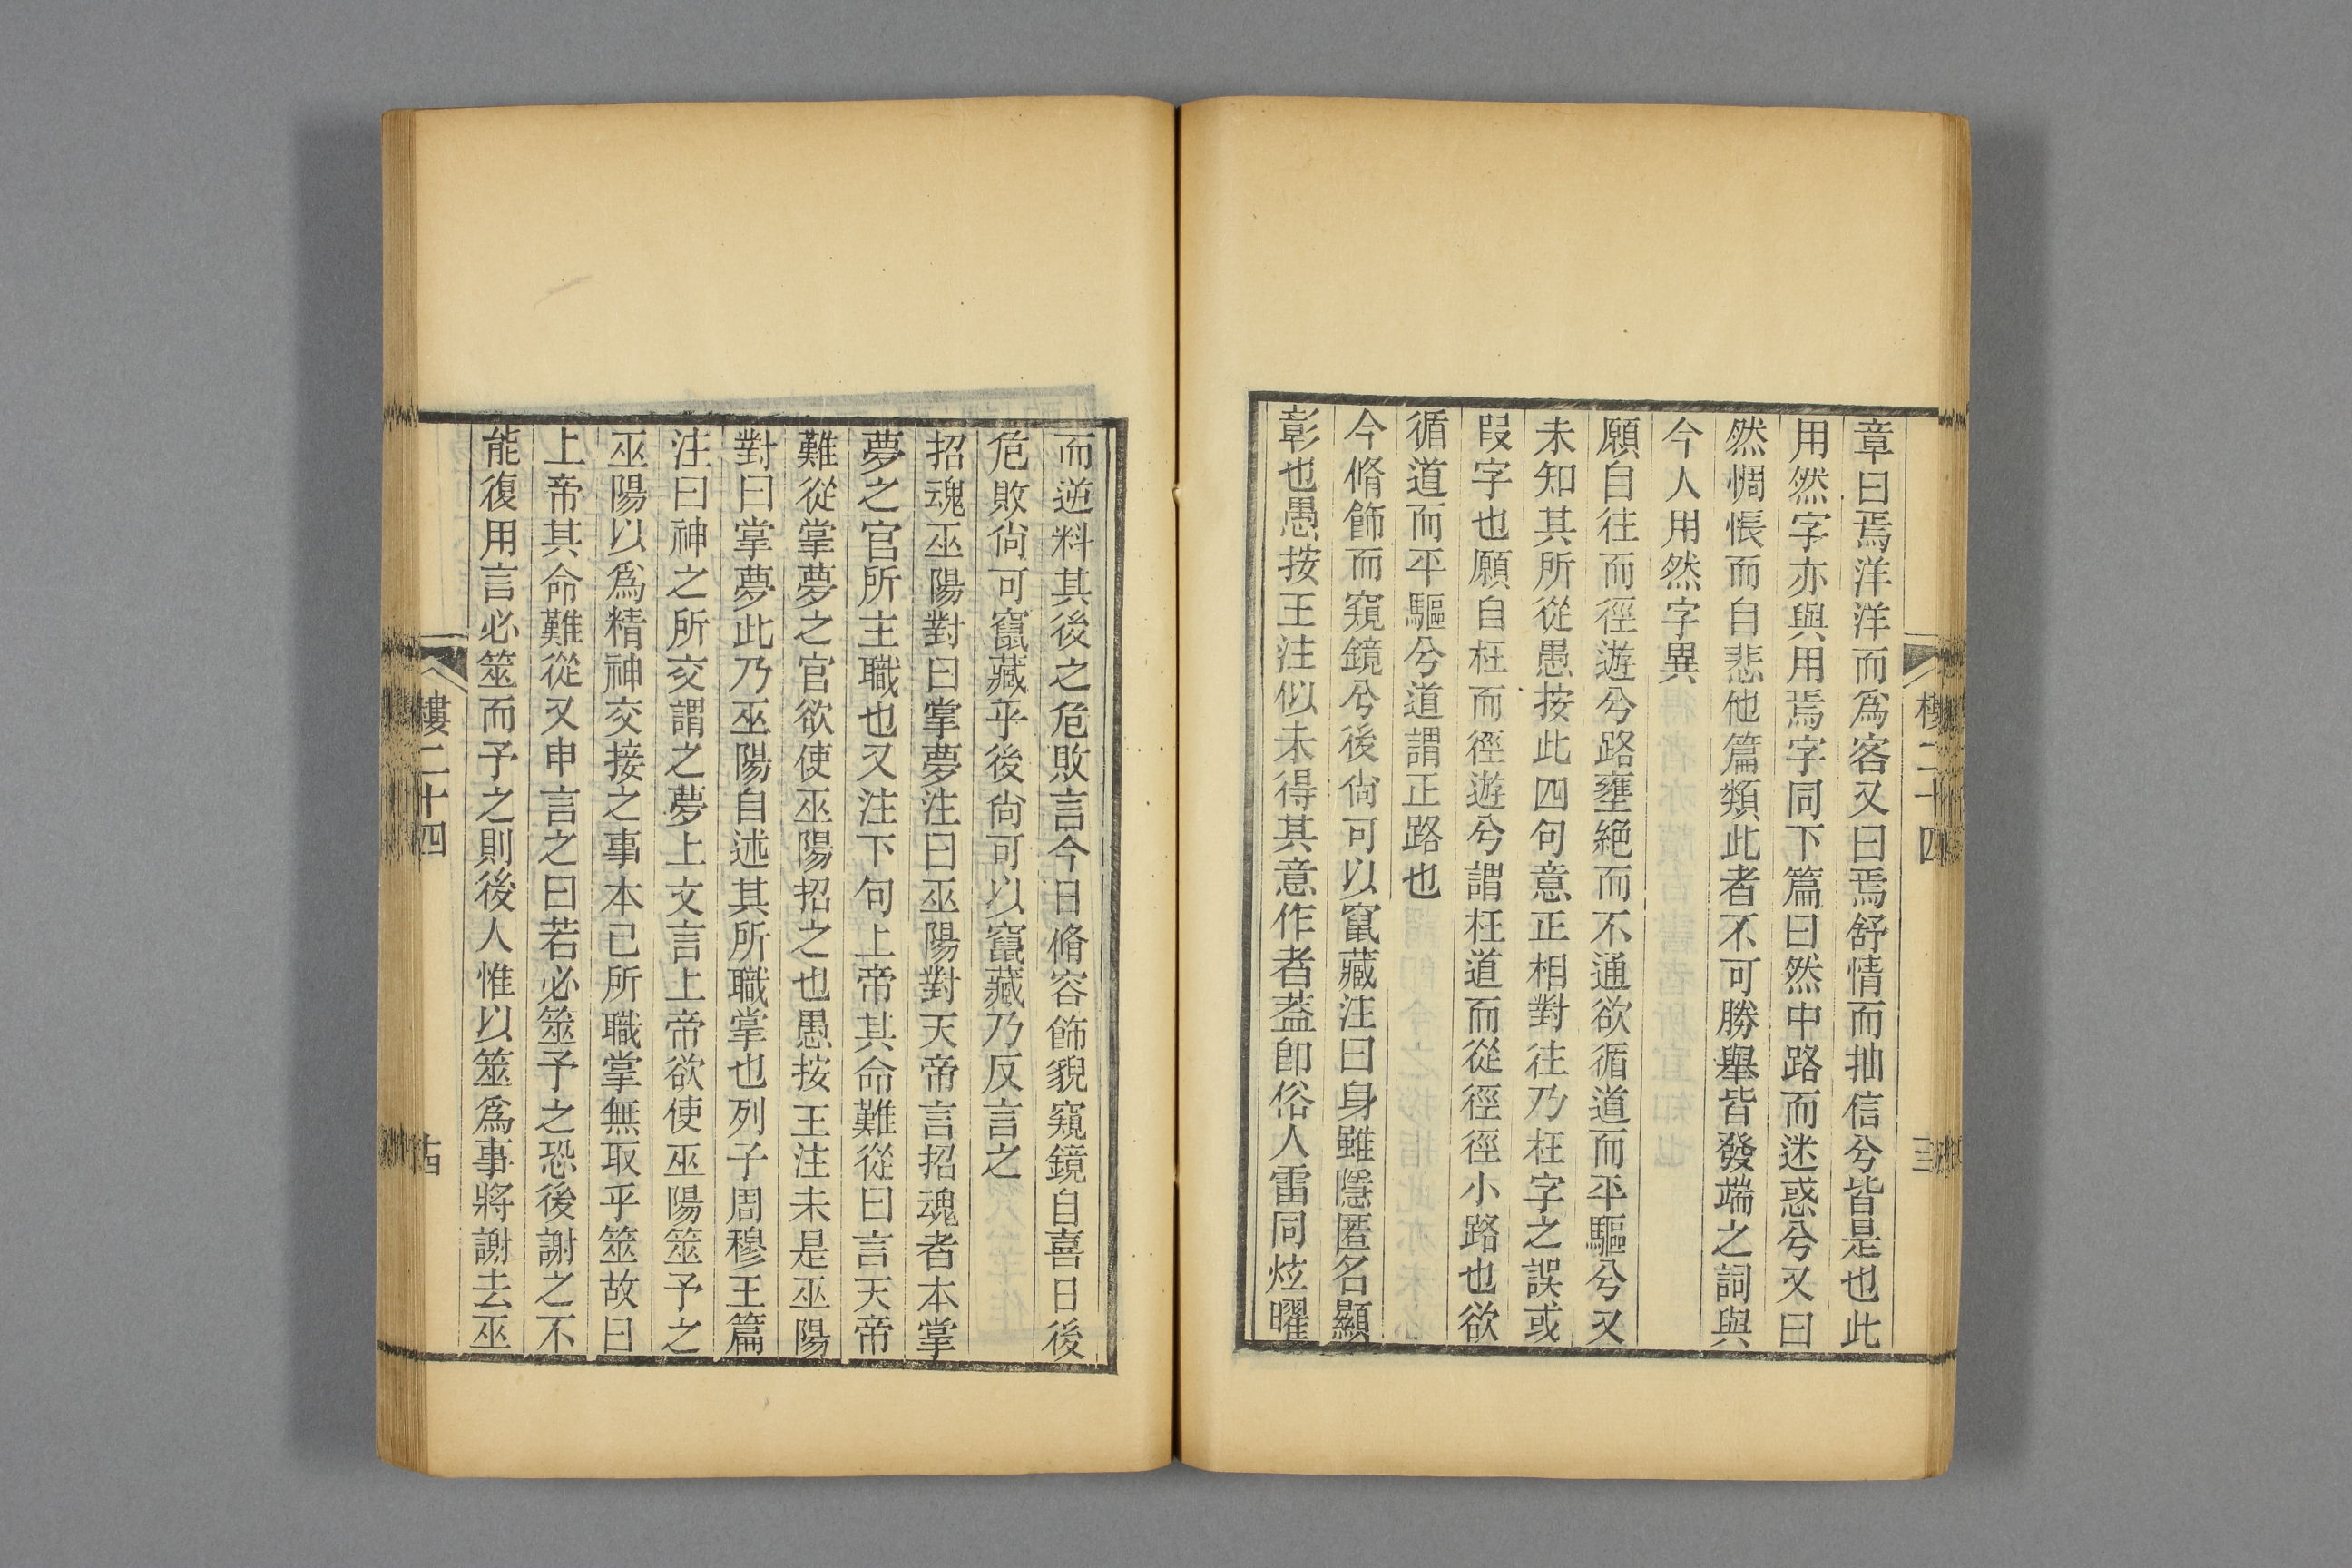 章曰焉洋洋而爲客又曰焉舒情而抽信兮皆是也此
用然字亦與用焉字同下篇曰然中路而迷惑兮又曰
然惆悵而自悲他篇類此者不可勝舉皆發端之詞與
今人用然字異
願自往而徑遊兮路壅絶而不通欲循道而平驅兮又
未知其所從愚按此四句意正相對往乃枉字之誤或
叚字也願自枉而徑遊兮謂枉道而從徑徑小路也欲
循道而平驅兮道謂正路也
今脩飾而窺鏡兮後尙可以竄藏注曰身雖隱匿名顯
彰也愚按王注似未得其意作者蓋卽俗人雷同炫曜
樓二十四
而逆料其後之危敗言今日脩容飾貌窺鏡自喜日後
危敗尙可竄藏乎後尙可以竄藏乃反言之
招魂巫陽對曰掌夢注曰巫陽對天帝言招魂者本掌
夢之官所主職也又注下句上帝其命難從曰言天帝
難從掌夢之官欲使巫陽招之也愚按王注未是巫陽
對曰掌夢此乃巫陽自述其所職掌也列子周穆王篇
注曰神之所交謂之夢上文言上帝欲使巫陽筮予之
巫陽以爲精神交接之事本已所職掌無取乎筮故曰
上帝其命難從又申言之曰若必筮予之恐後謝之不
能復用言必筮而予之則後人惟以筮爲事將謝去巫
樓二十四